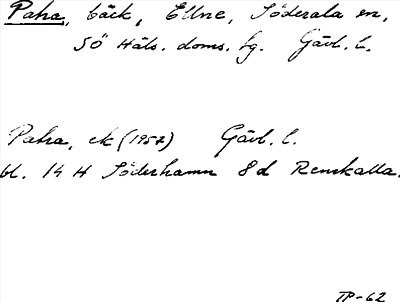 Paha, bäck, Ellne, Söderala sn,
SÖ Häls. doms. fg. Gävl. l.
Paha, ek (1957) Gävl. l.
bl. 14 H Söderhamn 8d Renskalla.
TP-62